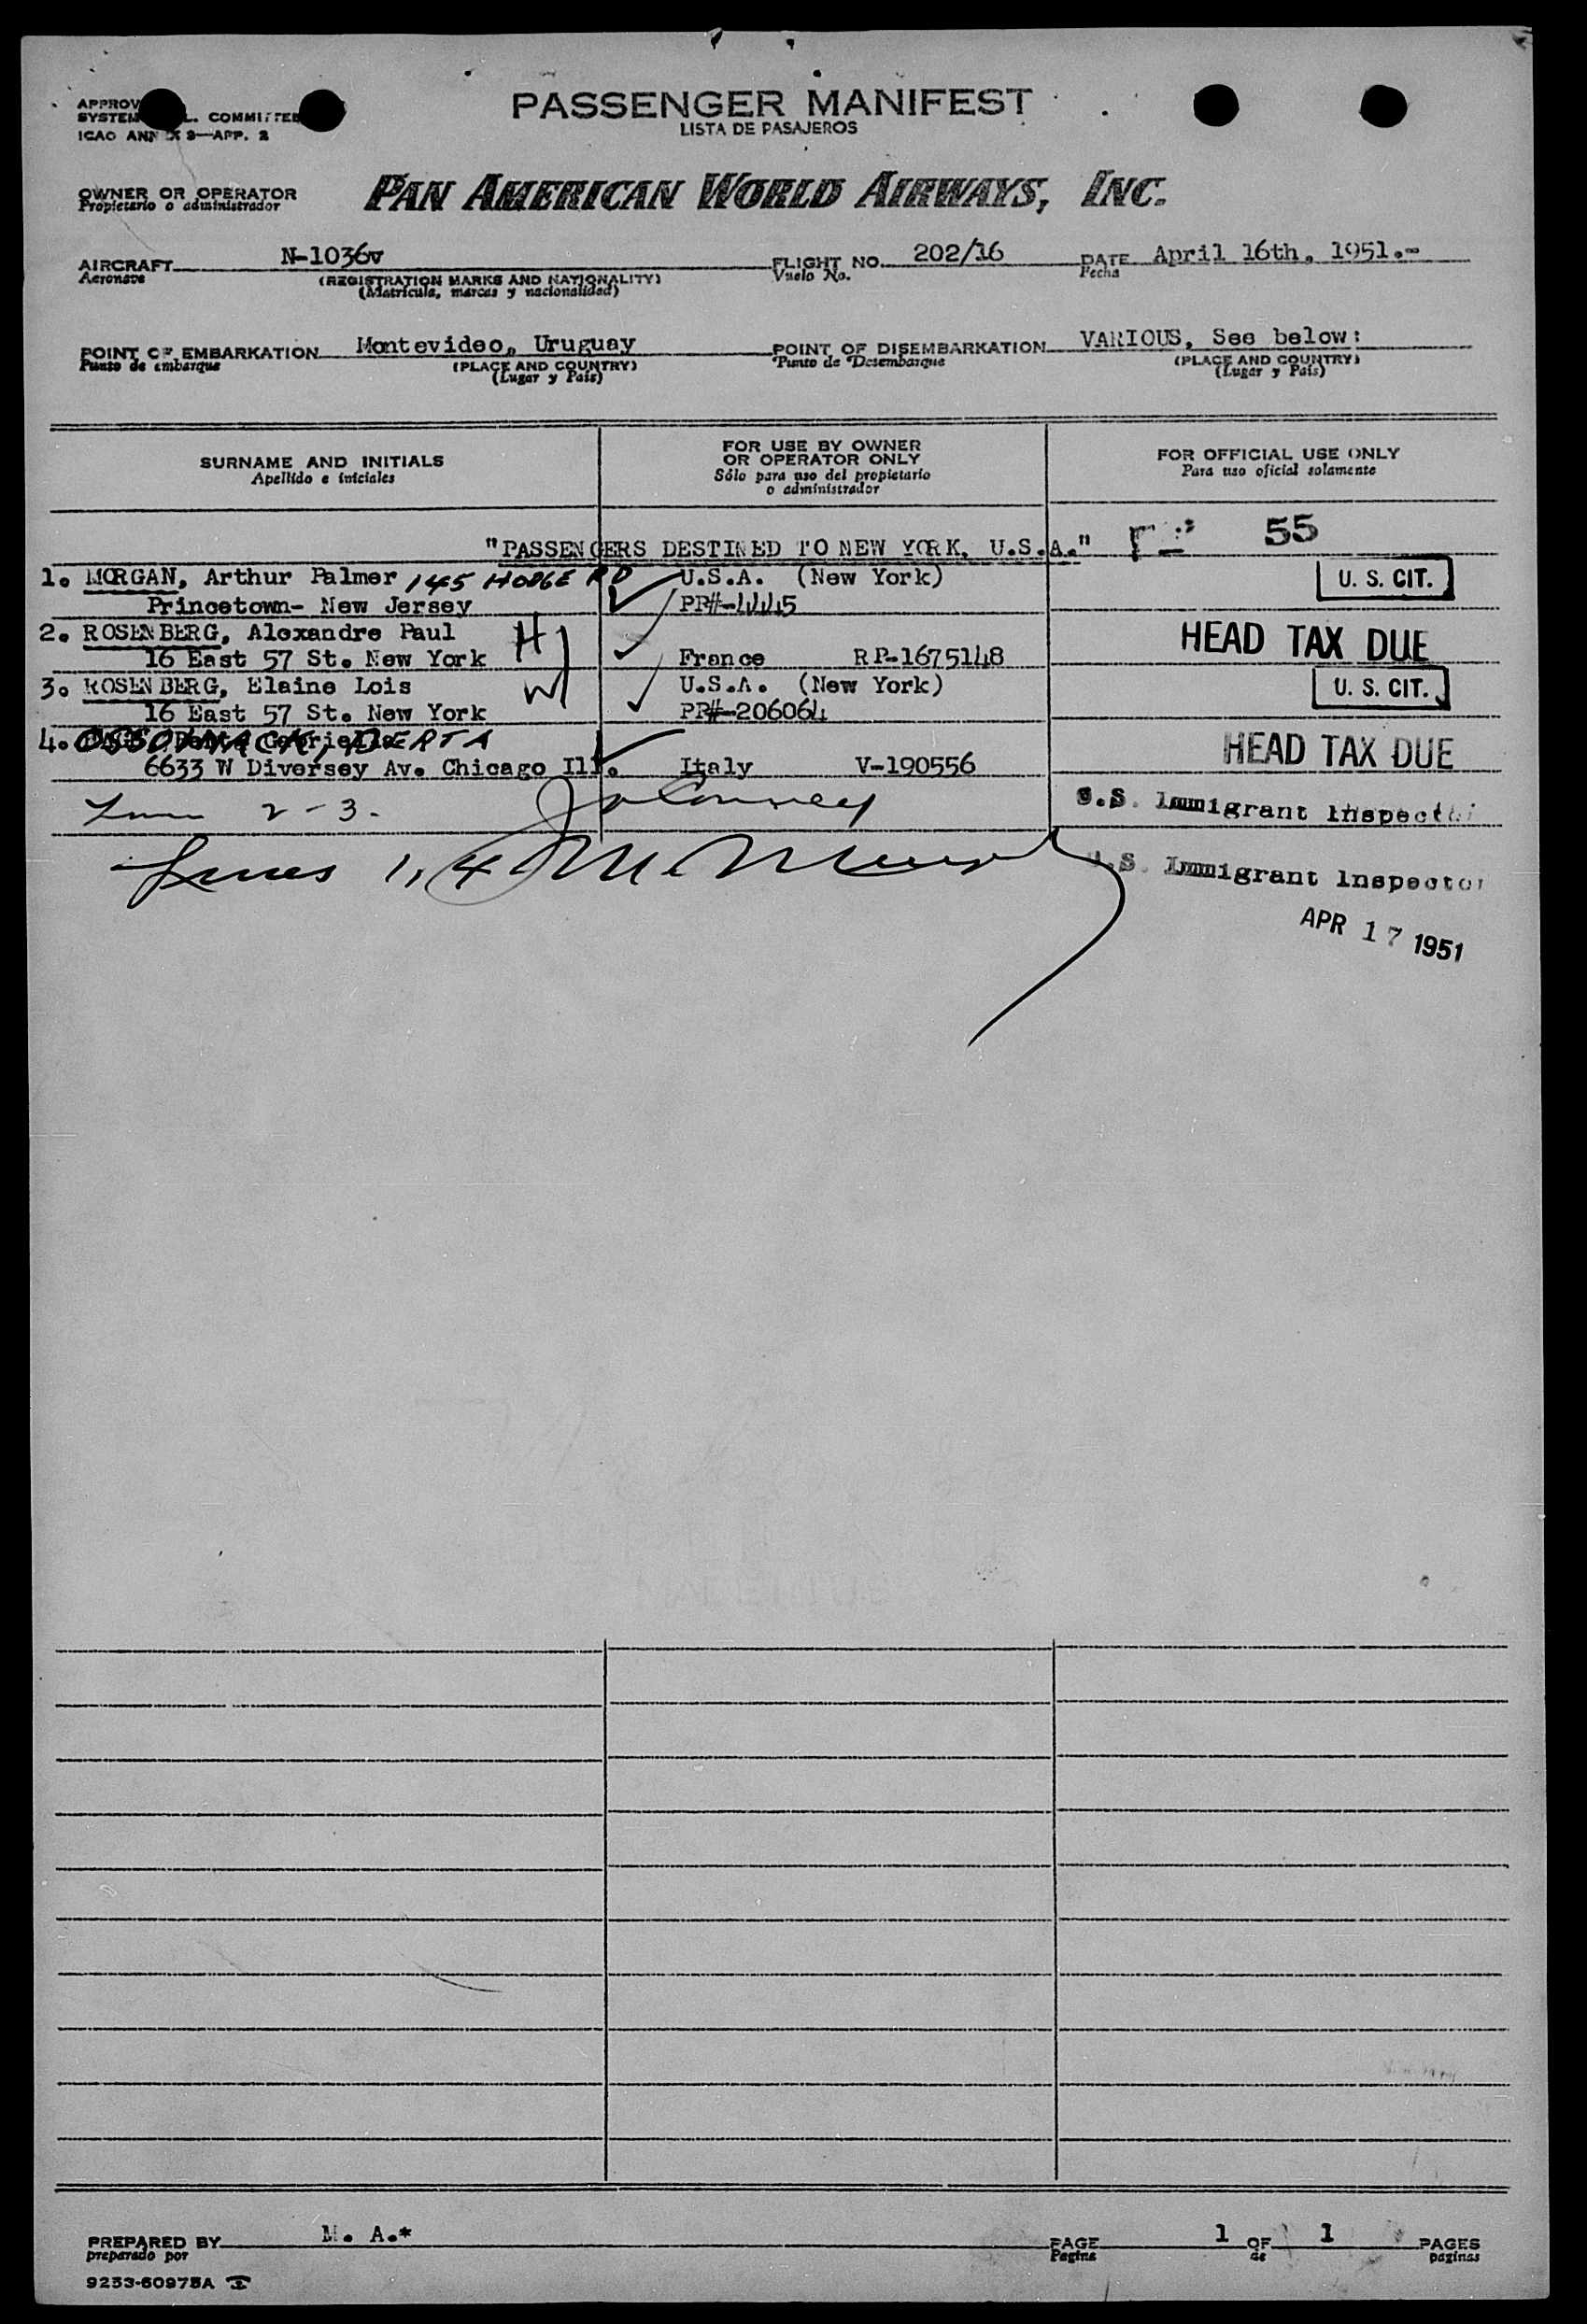 PASSENGER MANIFEST
LISTA DE PASAJEROS
APPROV L. COMMITTEE
SYSTEM
ICAO ANNEX 9—APP. 2
OWNER OR OPERATOR PAN AMERICAN WORLD AIRWAYS, INC.
Propietario o administrador
AIRCRAFT N-1036v FLIGHT NO. 202/16 DATE April 16th, 1951.-
Aeronave (REGISTRATION MARKS AND NATIONALITY) Vuelo No. Fecha
(Matrícula, marcas y nacionalidad)
POINT OF EMBARKATION Montevideo, Uruguay POINT OF DISEMBARKATION VARIOUS, See below:
Punto de embarque (PLACE AND COUNTRY) Punto de Desembarque (PLACE AND COUNTRY)
(Lugar y País) (Lugar y País)
SURNAME AND INITIALS FOR USE BY OWNER OR OPERATOR ONLY FOR OFFICIAL USE ONLY
Apellido e iniciales Sólo para uso del propietario o administrador Para uso oficial solamente
"PASSENGERS DESTINED TO NEW YORK, U.S.A." 55
1. MORGAN, Arthur Palmer 145 HODGE RD U.S.A. (New York) U. S. CIT.
Princetown- New Jersey PP#-4445
2. ROSENBERG, Alexandre Paul H HEAD TAX DUE
16 East 57 St. New York France RP-1675148
3. ROSENBERG, Elaine Lois W U.S.A. (New York) U. S. CIT.
16 East 57 St. New York PP#-206064
4. BERTA HEAD TAX DUE
6633 W Diversey Av. Chicago Ill. Italy V-190556
2-3. U.S. Immigrant Inspector
Lines 1,4 U.S. Immigrant Inspector
APR 17 1951
PREPARED BY M. A.* PAGE 1 OF 1 PAGES
preparado por Página de páginas
9233-60975A